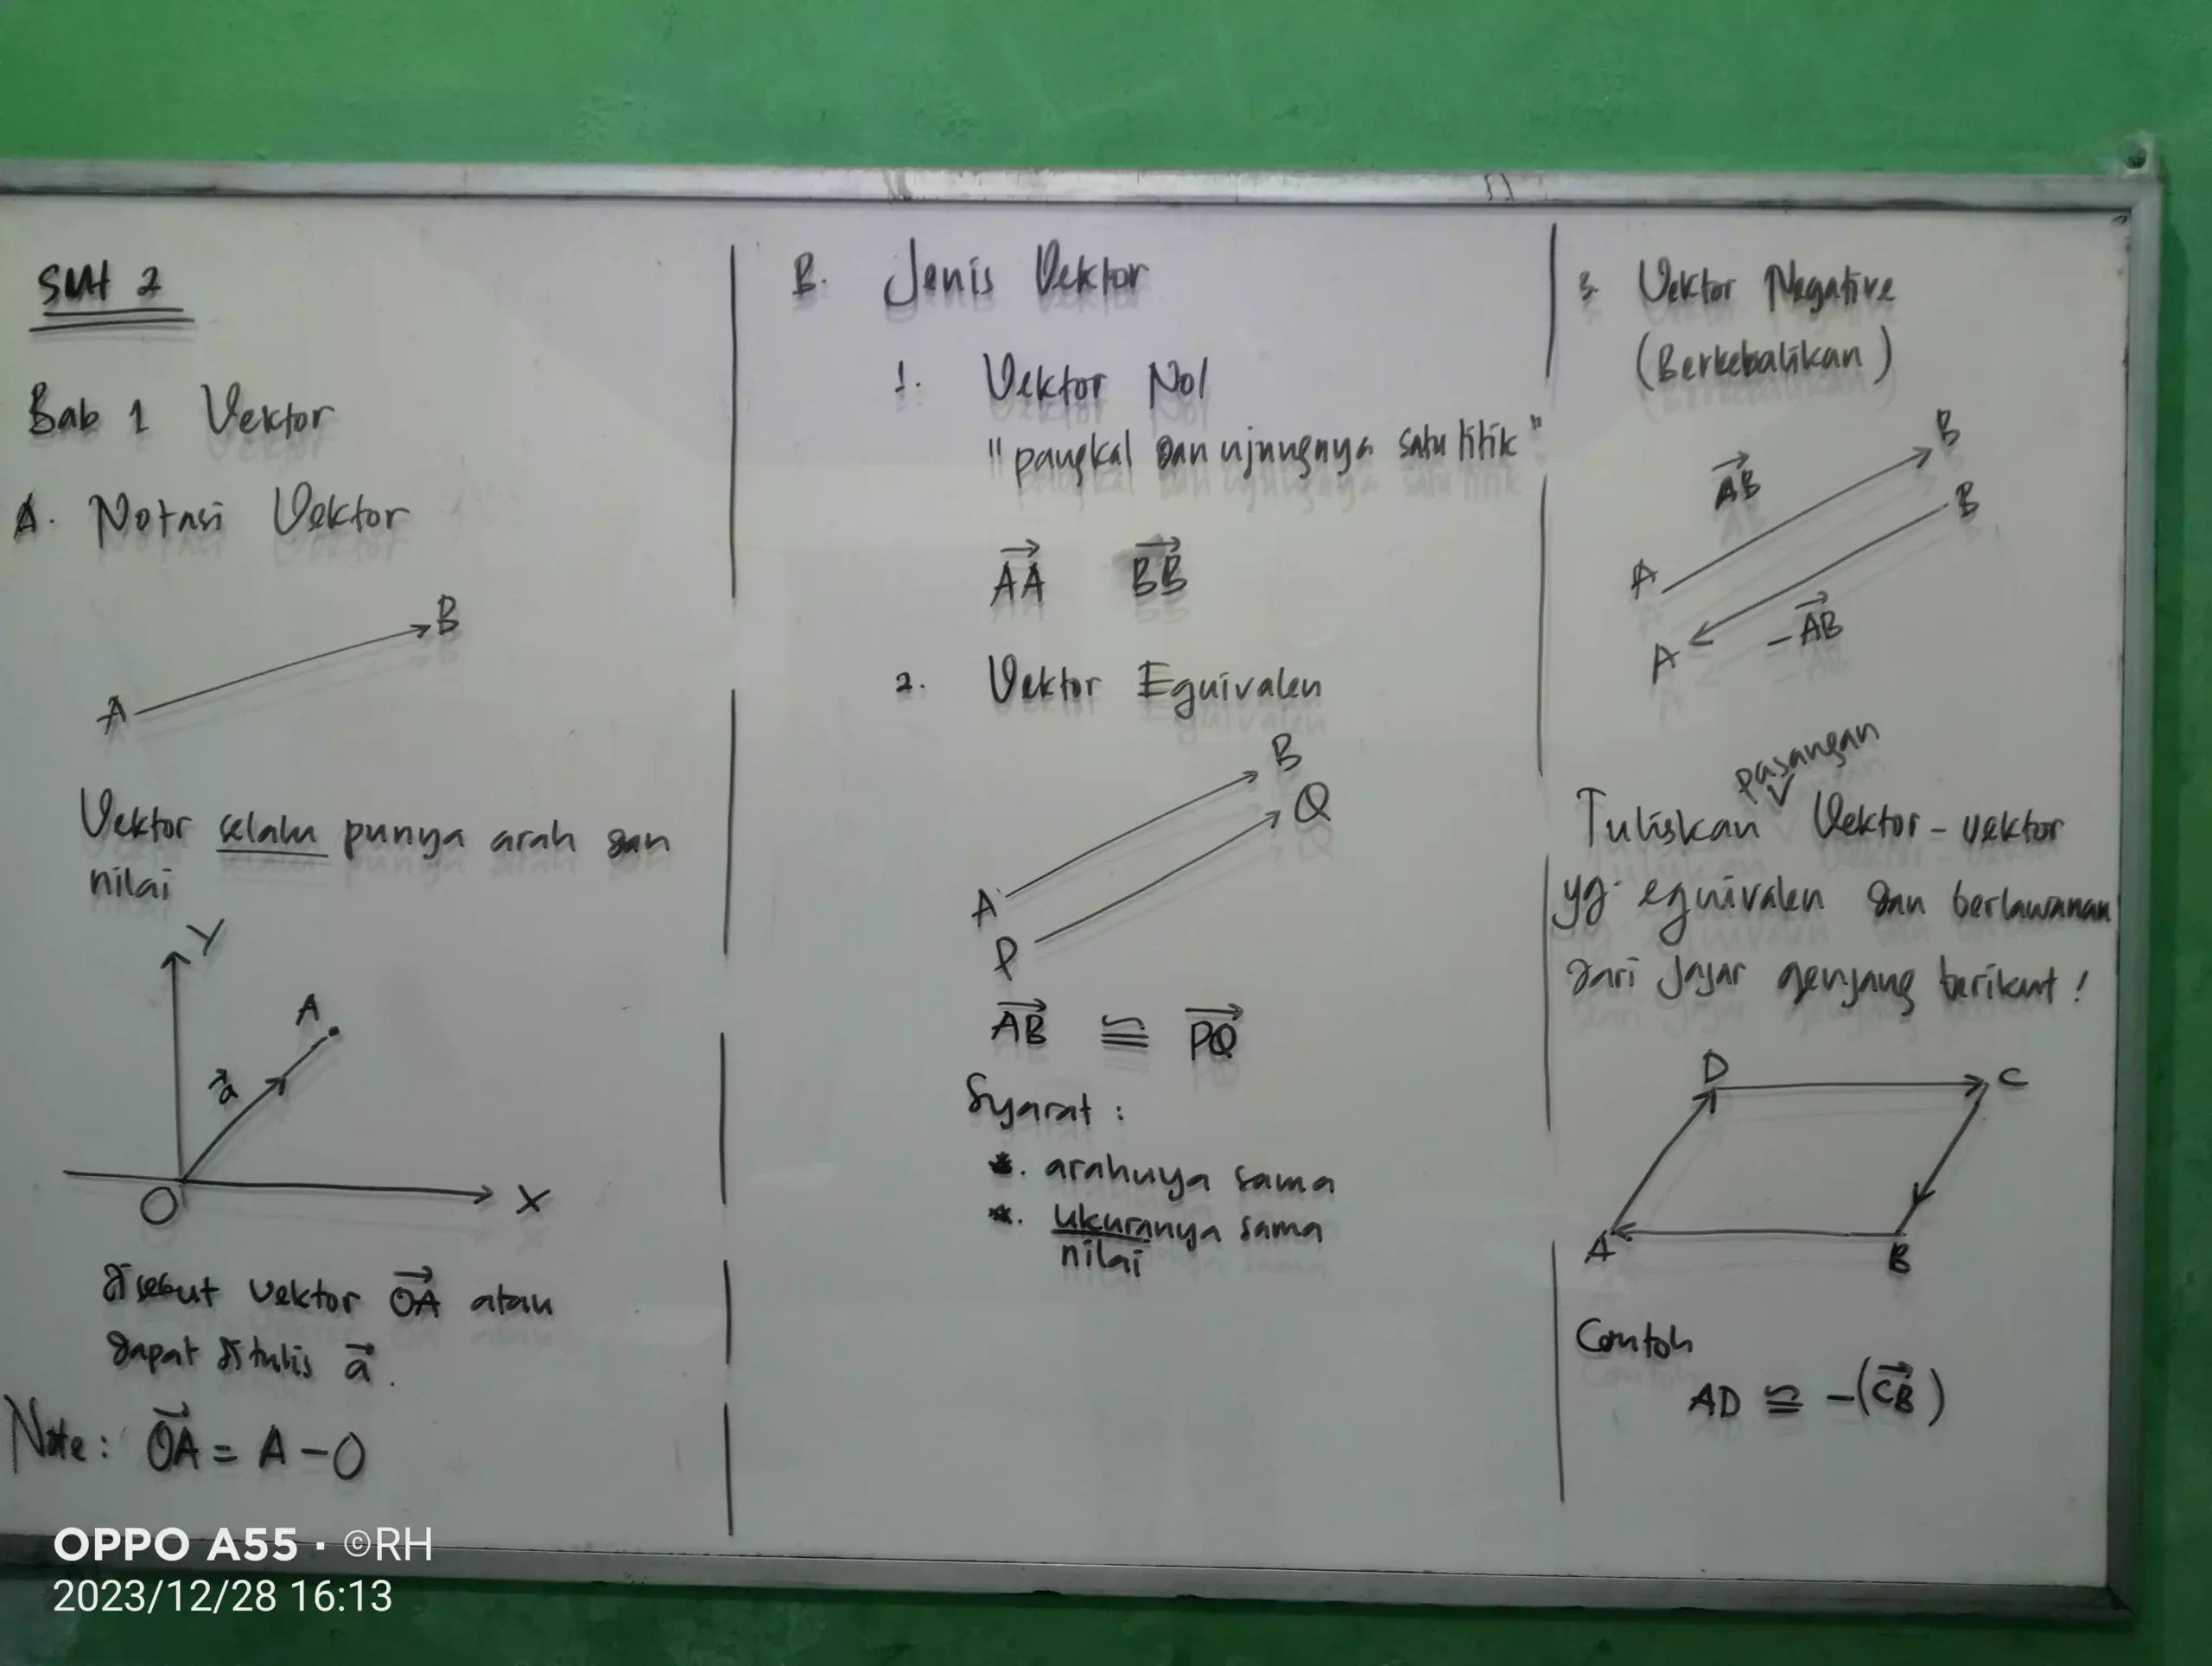 SMT 2
Bab 1 Vektor
A. Notasi Vektor
B
A
Vektor selalu punya arah dan
nilai
Y
A
a
O
X
disebut vektor OA atau
dapat ditulis a.
Note: OA = A - O
B. Jenis Vektor
1. Vektor Nol
"pangkal dan ujungnya satu titik"
AA BB
2. Vektor Equivalen
B
Q
A
P
AB ≌ PQ
Syarat :
*. arahnya sama
*. ukurannya sama
nilai
3. Vektor Negative
(Berkebalikan)
B
AB
B
A
-AB
A
pasangan
Tuliskan Vektor-vektor
yg. equivalen dan berlawanan
dari jajar genjang berikut!
D
C
A
B
Contoh
AD ≌ -(CB)
OPPO A55 · ©RH
2023/12/28 16:13